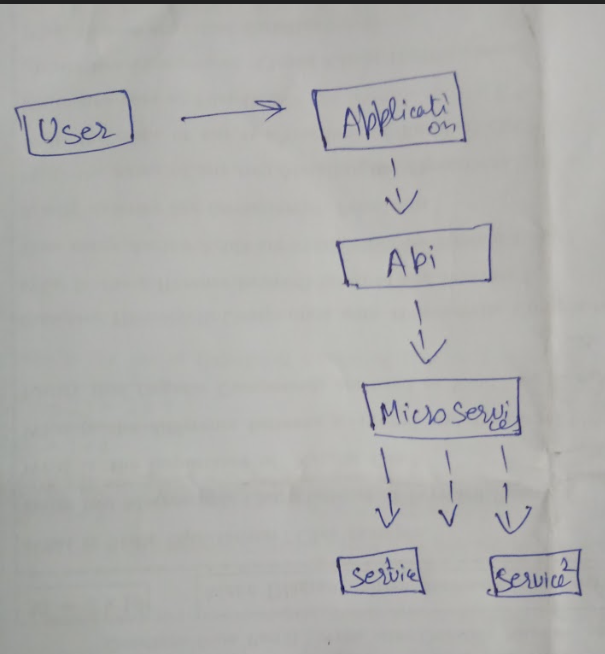 User
Applicati
on
Api
Microservi
ces
Service 1
Service 2